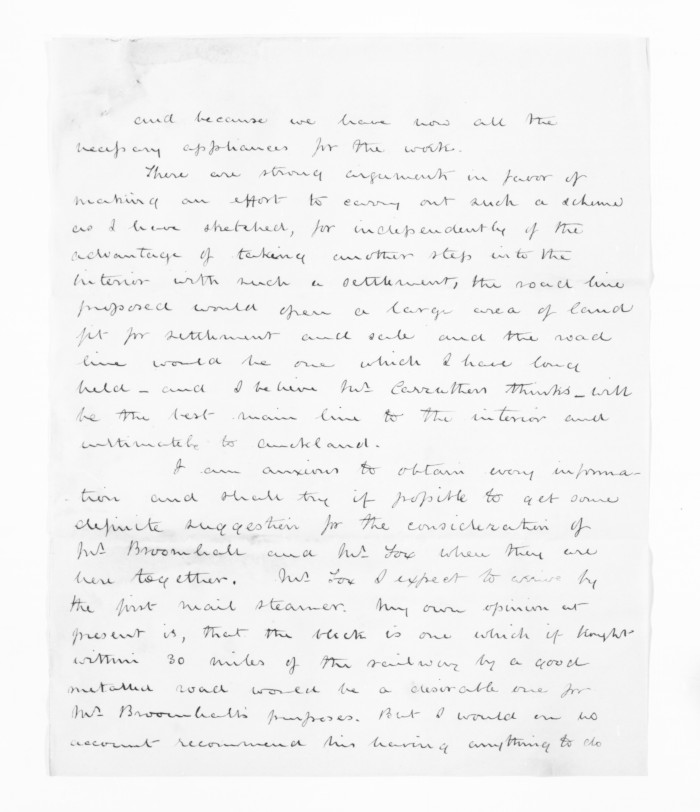 and because we have now all the
necessary appliances for the work.
There are strong arguments in favor of
making an effort to carry out such a scheme
as I have sketched, for independently of the
advantage of taking another step into the
interior with such a settlement, the road line
proposed would open a large area of land
fit for settlement and sale and the road
line would be one which I have long
held - and I believe Mr. Carruthers thinks - will
be the best main line to the interior and
ultimately to Auckland.
I am anxious to obtain every informa-
tion and shall try if possible to get some
definite suggestion for the consideration of
Mr. Broomhall and Mr. Fox when they are
here together. Mr. Fox I expect to arrive by
the first mail steamer. My own opinion at
present is, that the block is one which if bought
within 30 miles of the railway by a good
metalled road would be a desirable one for
Mr. Broomhall's purposes. But I would on no
account recommend his having anything to do